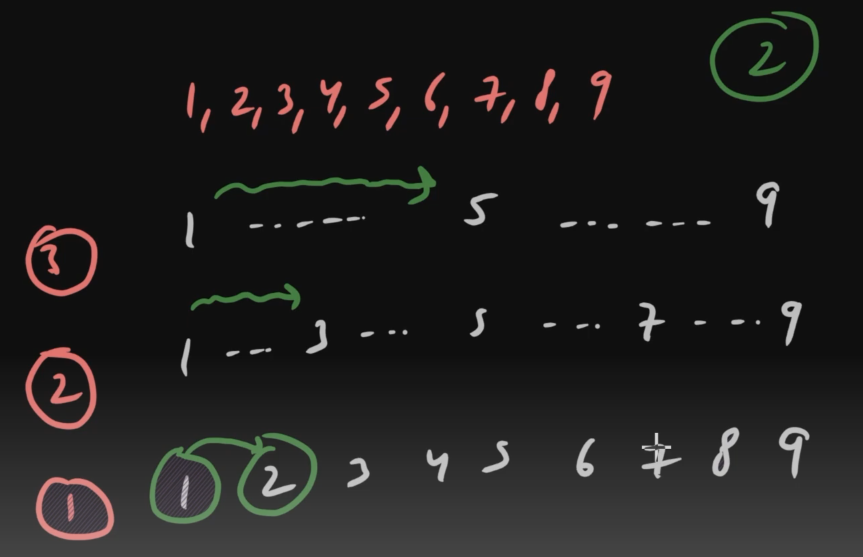 2
1, 2, 3, 4, 5, 6, 7, 8, 9
1 ------ 5 ------ 9
3
1 --- 3 --- 5 --- 7 --- 9
2
1 1 2 3 4 5 6 7 8 9